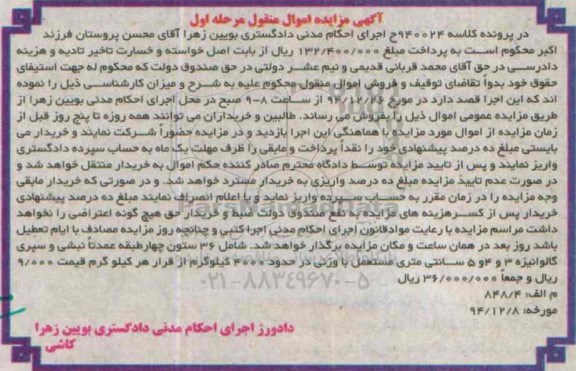 آگهی مزایده اموال منقول مرحله اول
در پرونده کلاسه ۹۴۰۰۲۴ح اجرای احکام مدنی دادگستری بویین زهرا آقای محسن پروستان فرزند
اکبر محکوم است به پرداخت مبلغ ۱۳۲/۴۰۰/۰۰۰ ریال از بابت اصل خواسته و خسارت تاخیر تادیه و هزینه
دادرسی در حق آقای محمد قربانی قدیمی و نیم عشر دولتی در حق صندوق دولت که محکوم له جهت استیفای
حقوق خود بدواً تقاضای توقیف و فروش اموال منقول محکوم علیه به شرح و میزان کارشناسی ذیل را نموده
اند که این اجرا قصد دارد در مورخ از ساعت ۹-۸ صبح در محل اجرای احکام مدنی بویین زهرا از
طریق مزایده عمومی اموال ذیل را بفروش می رساند. طالبین و خریداران می توانند همه روزه تا پنج روز قبل از
زمان مزایده از اموال مورد مزایده با هماهنگی این اجرا بازدید و در مزایده حضوراً شرکت نمایند و خریدار می
بایستی مبلغ ده درصد پیشنهادی خود را نقداً پرداخت و مابقی را ظرف مهلت یک ماه به حساب سپرده دادگستری
واریز نمایند و پس از تایید مزایده توسط دادگاه محترم صادر کننده حکم اموال به خریدار منتقل خواهد شد و
در صورت عدم تایید مزایده مبلغ ده درصد واریزی به خریدار مسترد خواهد شد. و در صورتی که خریدار مابقی
وجه مزایده را در زمان مقرر به حساب سپرده واریز نماید و یا اعلام انصراف نمایند مبلغ ده درصد پیشنهادی
خریدار پس از کسر هزینه های مزایده به نفع صندوق دولت ضبط و خریدار حق هیچ گونه اعتراضی را نخواهد
داشت مراسم مزایده با رعایت موادقانون اجرای احکام مدنی اجرا کتبی و چنانچه روز مزایده مصادف با ایام تعطیل
باشد روز بعد در همان ساعت و مکان مزایده برگذار خواهد شد. شامل ۳۶ ستون چهارطبقه عمدتاً نبشی و سپری
گالوانیزه ۳ و ۴و ۵ سانتی متری مستعمل با وزنی در حدود ۴۰۰۰ کیلوگرم از قرار هر کیلو گرم قیمت ۹/۰۰۰
ریال و جمعاً ۳۶/۰۰۰/۰۰۰ ریال
۰۲۱-۸۸۳۴۹۶۷۰-۵
م الف: ۸۴۸/۴
مورخه: ۹۴/۱۲/۸
دادورز اجرای احکام مدنی دادگستری بویین زهرا
کاشی